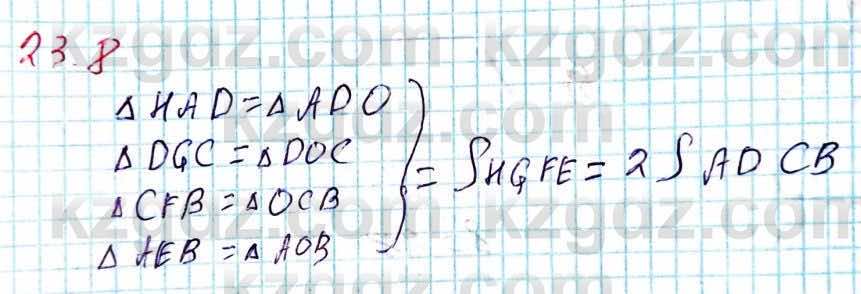 23.8
kzgdz.com kzgdz.com
△ HAD = △ ADO
△ DGC = △ DOC
△ CFB = △ OCB
△ AEB = △ AOB
} = SHGFE = 2 S ADCB
kzgdz.com kzgdz.com
kzgdz.com kzgdz.com
kzgdz.com kzgdz.com